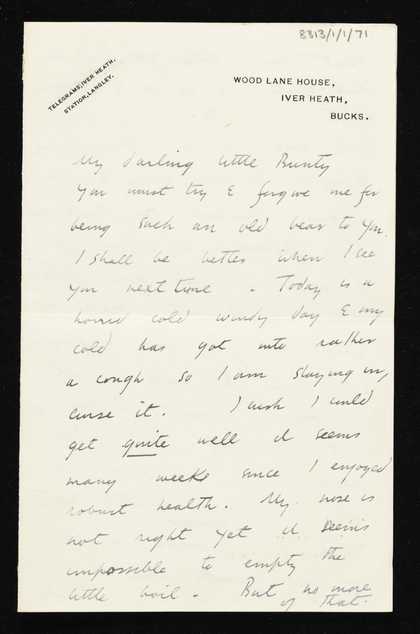 8313/1/1/71
TELEGRAMS, IVER HEATH.
STATION, LANGLEY.
WOOD LANE HOUSE,
IVER HEATH,
BUCKS.
My darling little Bunty
You must try & forgive me for
being such an old bear to you.
I shall be better when I see
you next time - Today is a
horrid cold windy day & my
cold has got into rather
a cough so I am staying in,
curse it. I wish I could
get quite well it seems
many weeks since I enjoyed
robust health. My nose is
not right yet it seems
impossible to empty the
little boil - But no more
of that.